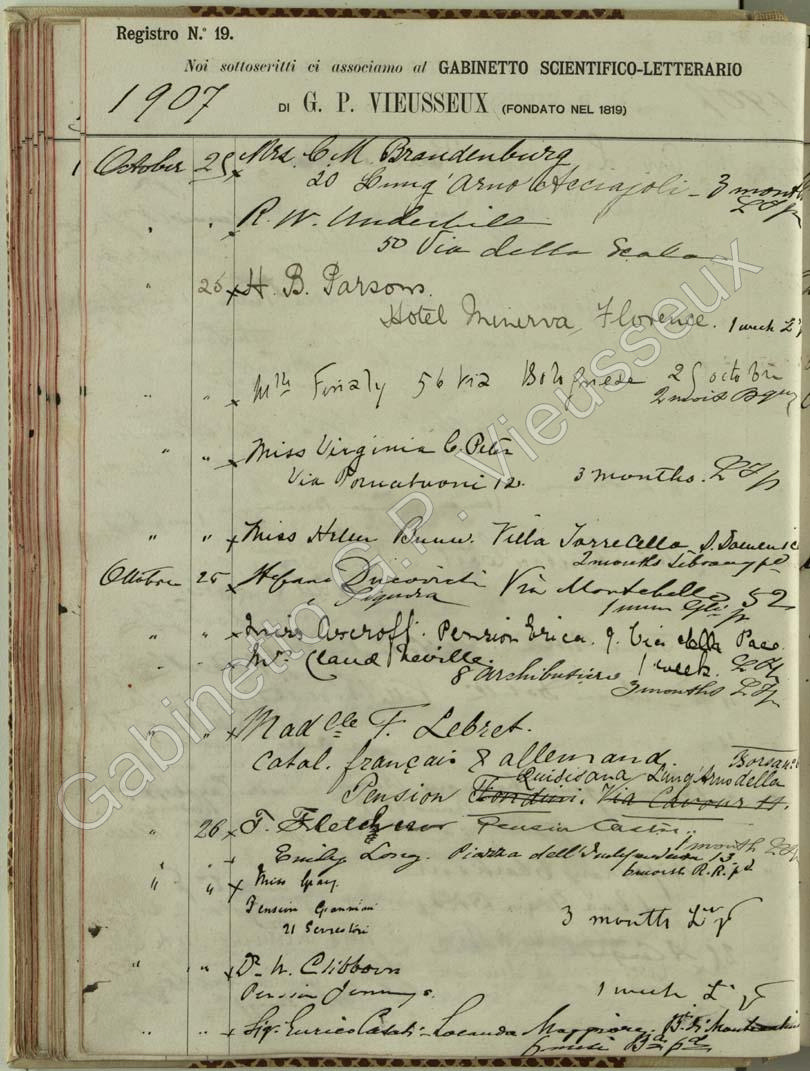 Registro N.° 19.
Noi sottoscritti ci associamo al GABINETTO SCIENTIFICO-LETTERARIO
1907
DI G. P. VIEUSSEUX (FONDATO NEL 1819)
October 25 Mrs. C. M. Brandenburg
20 Lung'Arno Acciajoli - 3 months
" " R. W. Underhill
50 Via della Scala
" 25 H. B. Parsons.
Hotel Minerva, Florence. 1 week
" " Finaly 56 Via Bolognese 25 octobre
2 mois
" " Miss Virginia C. Peter
Via 12. 3 months.
" " Miss Helen Villa Torricella S. Domenico
2 months Library pd
Ottobre 25 Stefano Via Montebello 52
Signora
" " Miss Ascroff. Pension Erica. 9. Via della Pace
1 week.
" " Mr. Claud Neville.
8 Archibusieri
3 months
" " Madlle F. Lebret.
Catal. français & allemand.
Quisisana Lung'Arno della Borsa
Pension Via Cavour
" 26 F. Fletcher Pension
1 month
" " Emily Long. Piazza dell'Indipendenza 13
6 month R.R. pd
" " Miss Gray.
Pension Giannini
21 Serristori
3 month
" " Dr. N. Clibborn
Pension Jennings. 1 week
" " Sig. Enrico Casati - Locanda Maggiore.
6 mesi
Gabinetto G.P. Vieusseux